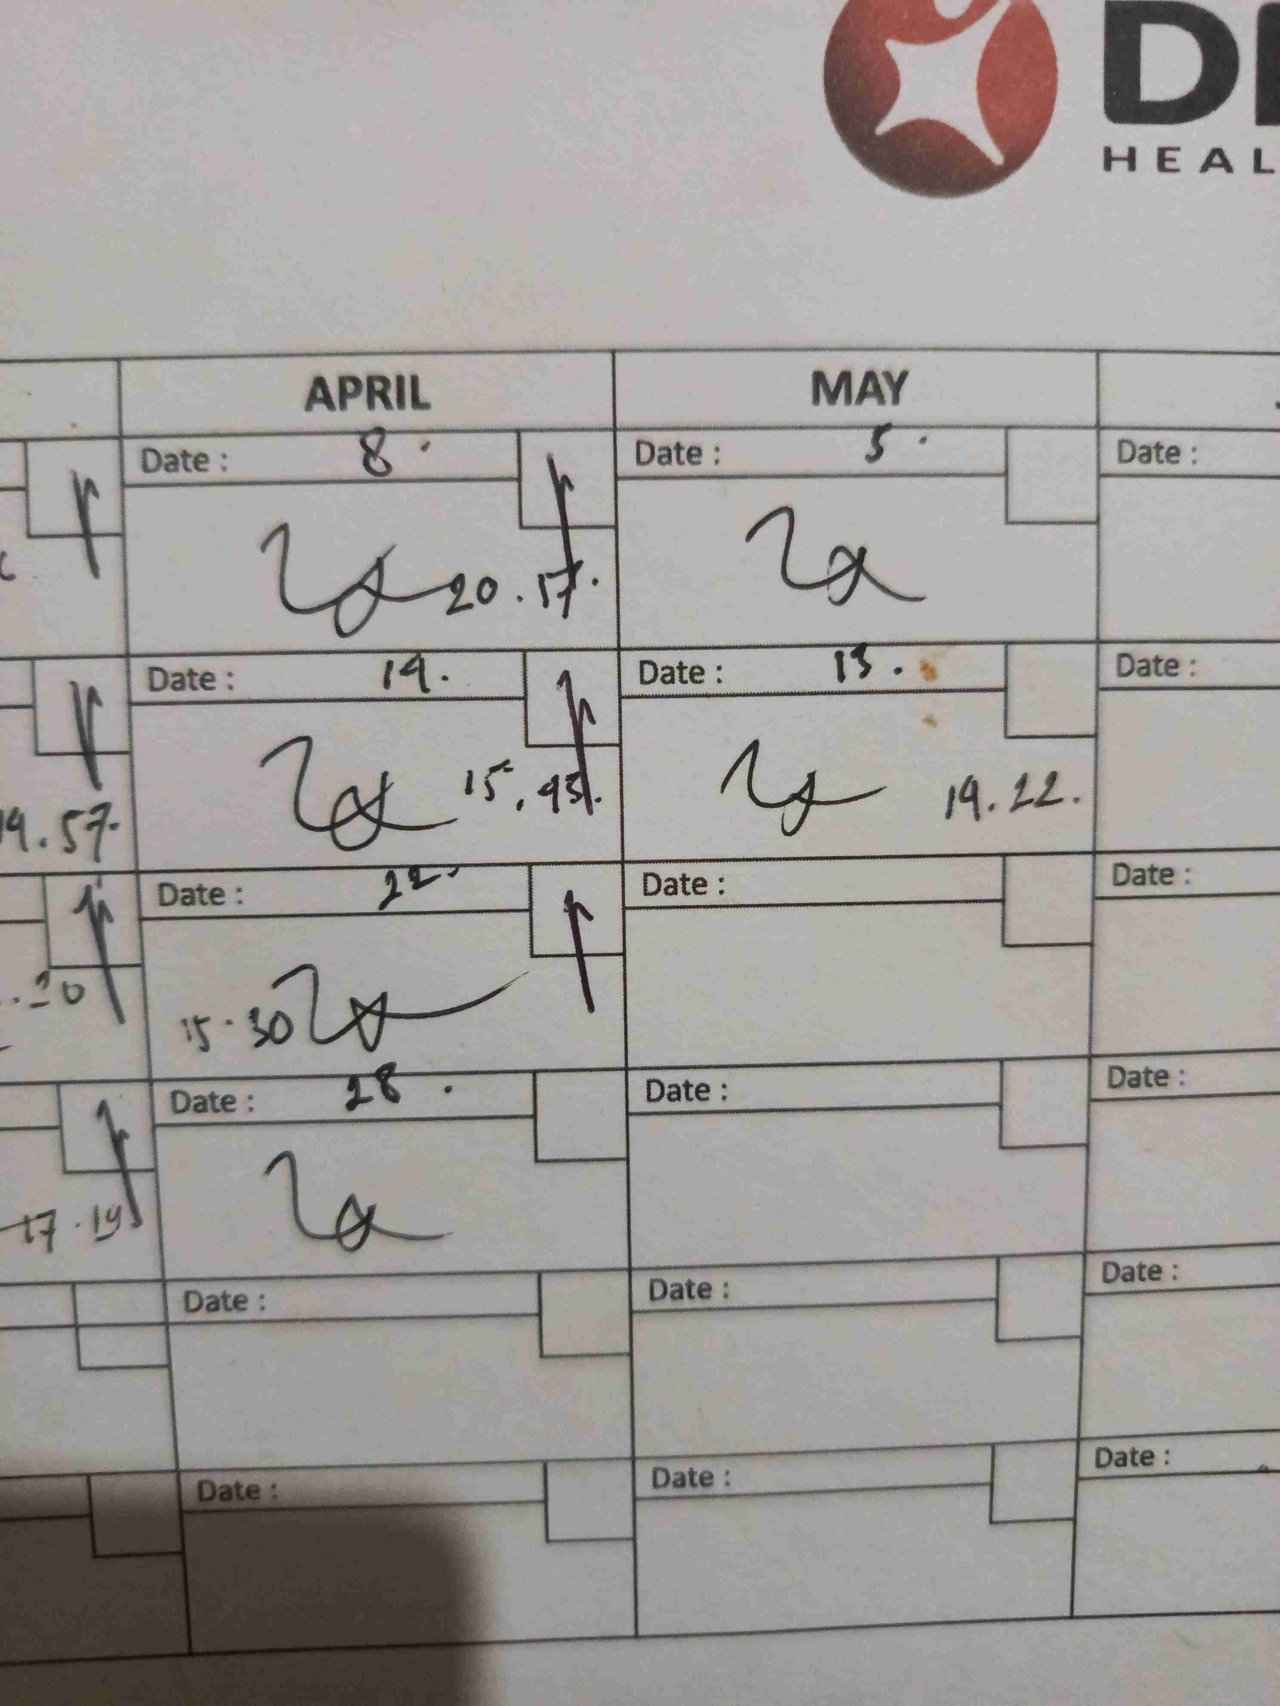 HEAL
APRIL
MAY
Date : 8.
Date : 5.
Date :
20.17.
Date : 14.
Date : 13.
Date :
15.45.
19.22.
19.57.
Date : 22.
Date :
Date :
.20
15.30
Date : 28.
Date :
Date :
17.19
Date :
Date :
Date :
Date :
Date :
Date :